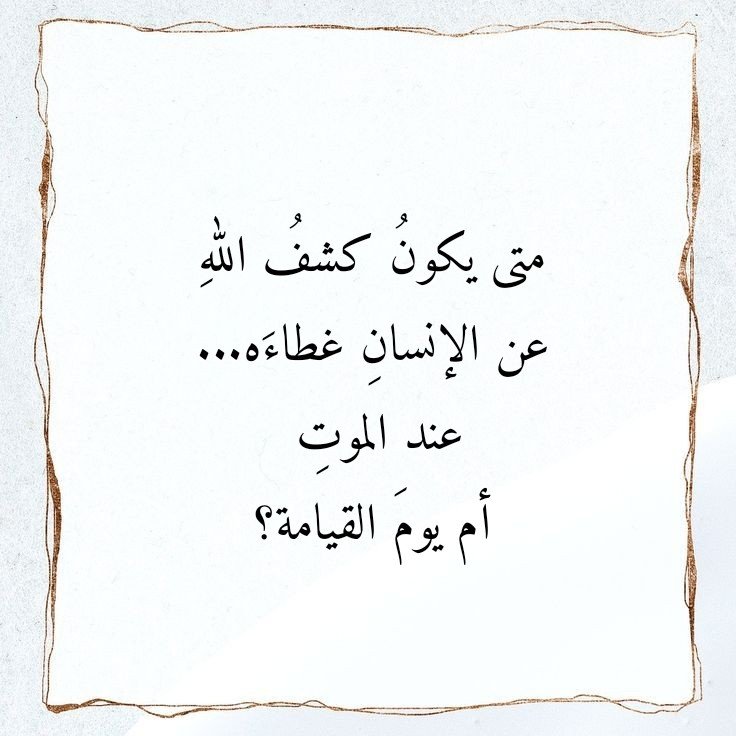 متى يكونُ كشفُ اللهِ
عن الإنسانِ غطاءَه...
عند الموتِ
أم يومَ القيامة؟